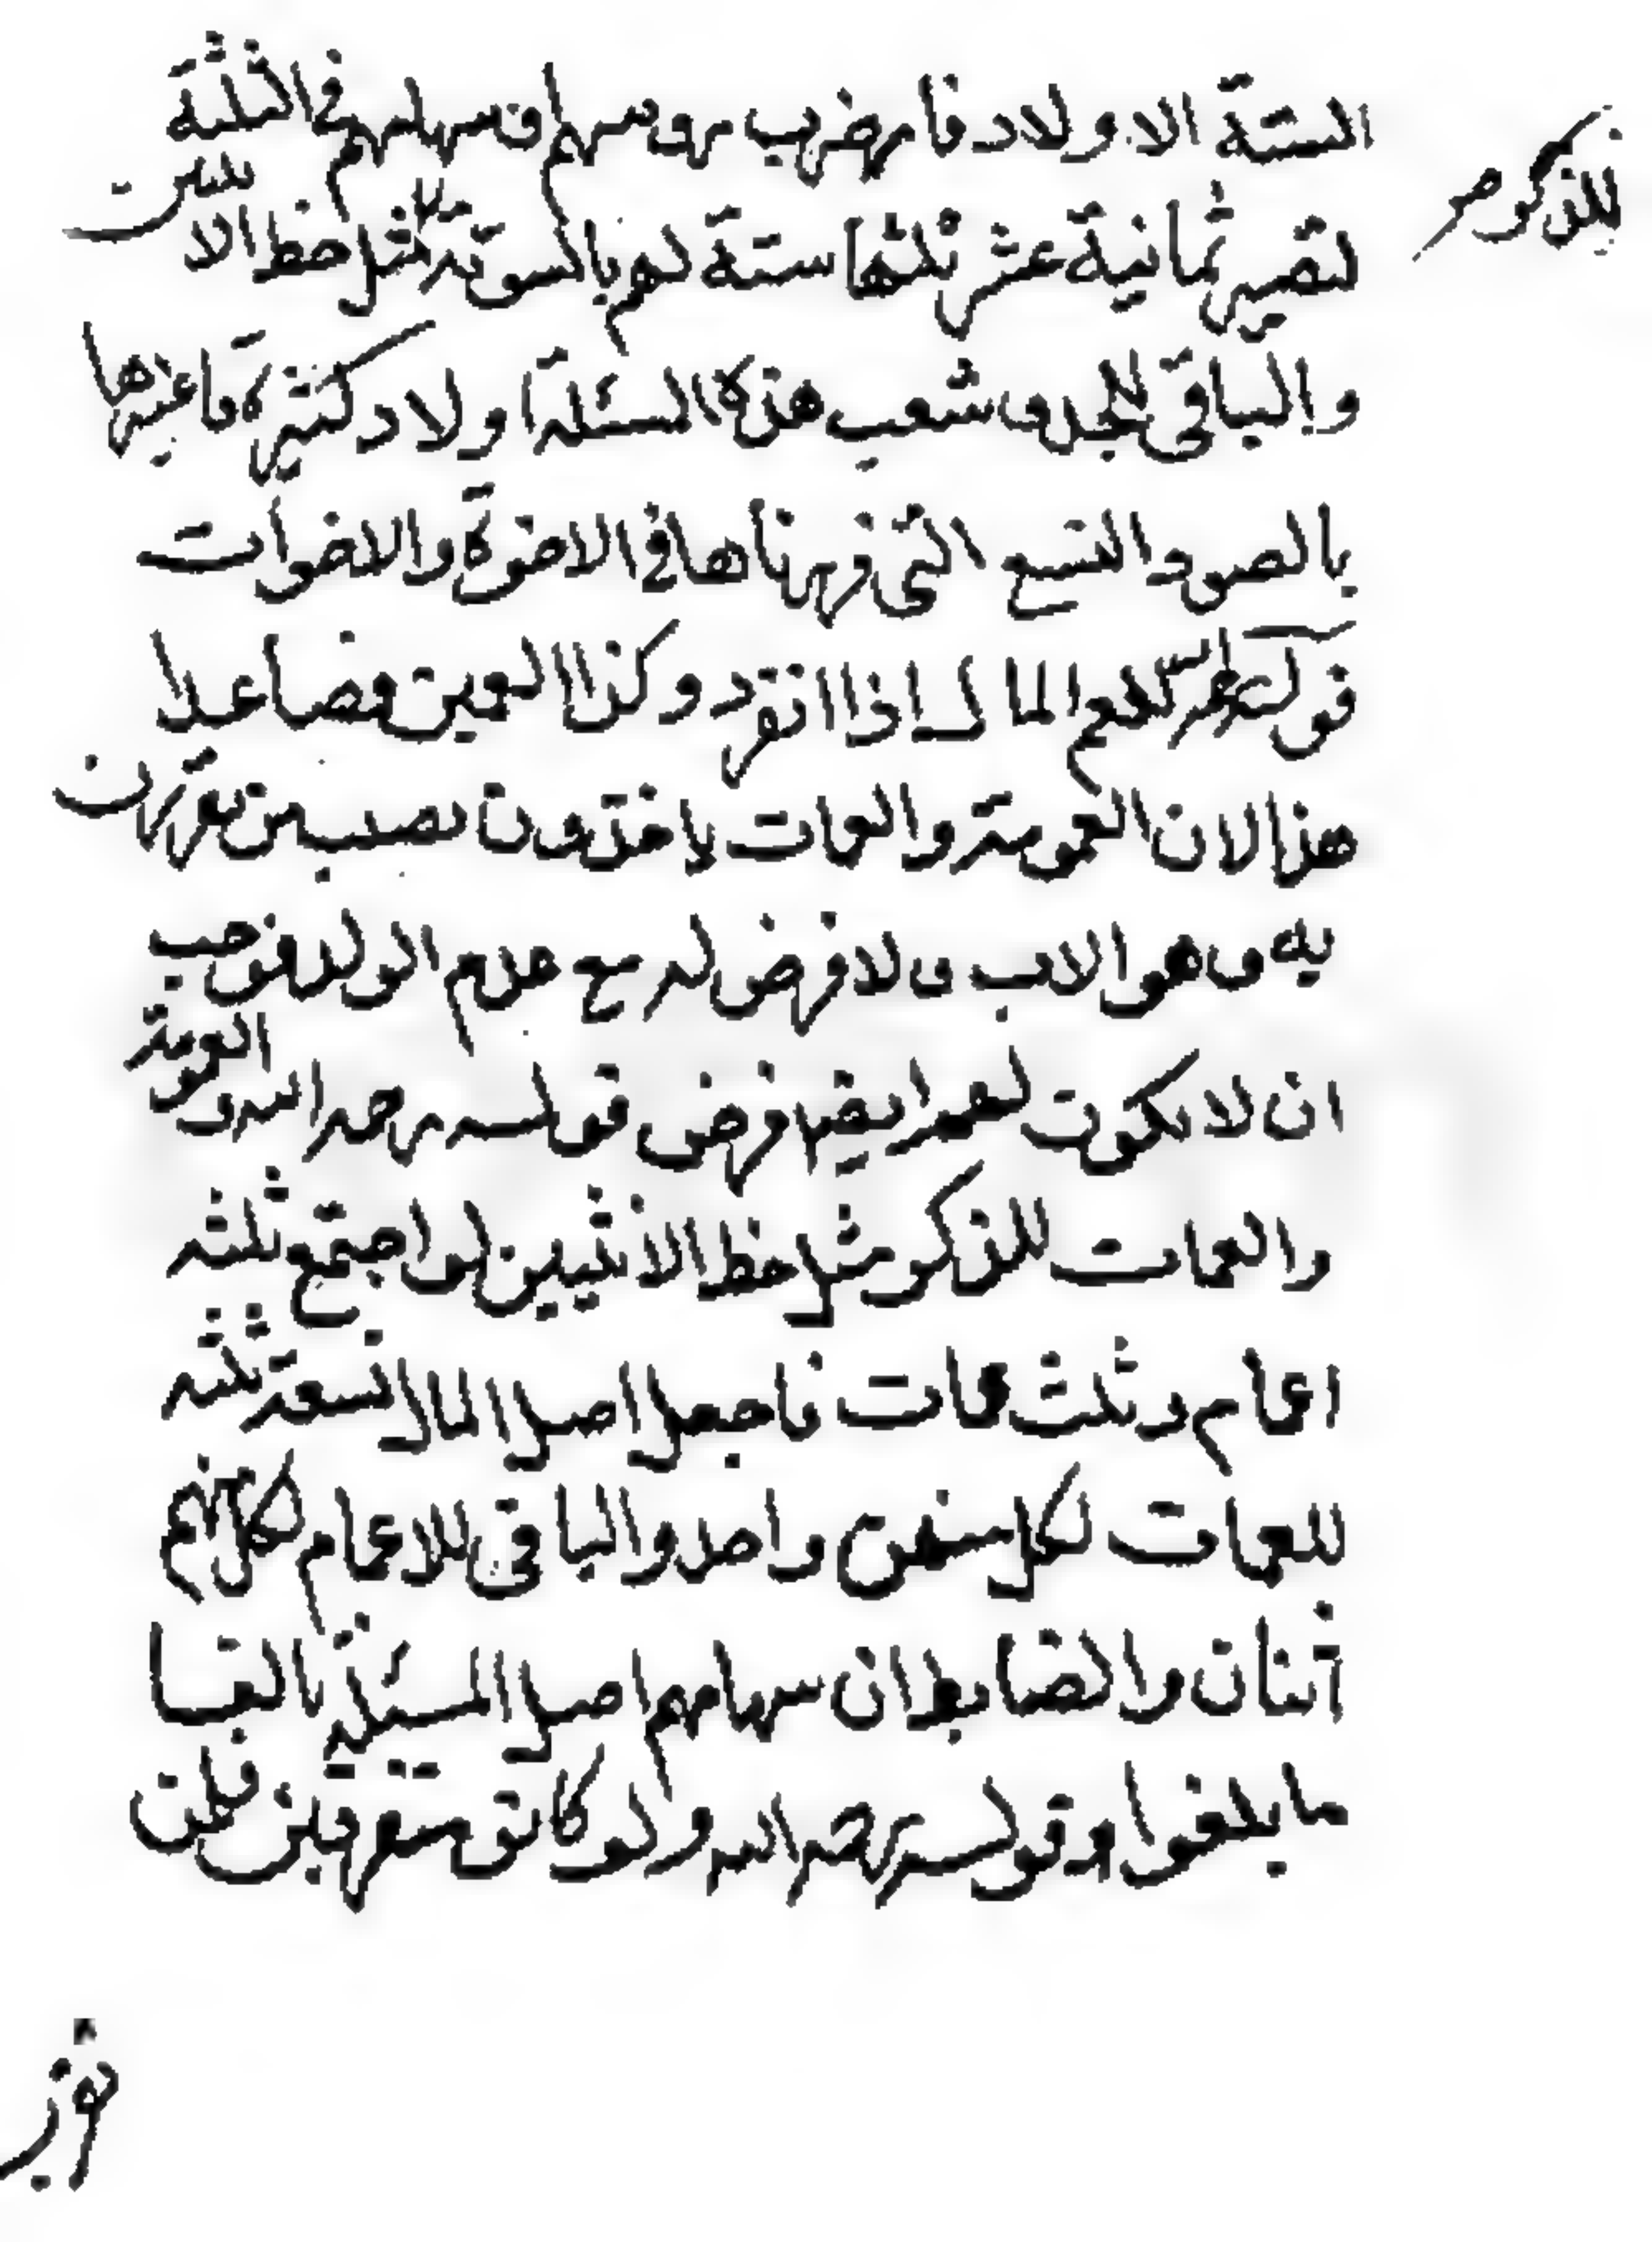 الستة الاولاد فاضرب روسهم وسهامهم في الثلثة
للذكر
لتصير ثمانية عشر ثلثها ستة لهم بالسوية مثل حظ الانثيين
والباقي للجد وشعب هذه المسئلة اولاد كثيرة فاعتبرها
بالصور التسع التي قررناها في الاخوة والاخوات
قوله المال اذا انفرد وكذا العمين فصاعدا
هذا لان العمومة والعمات ياخذون نصيب من يتقربون
به وهو الاب ولا فرض له مع عدم الولد فوجب
ان لا يكون لهم ايضا فرض قوله رحمه الله والعمومة
والعمات للذكر مثل حظ الانثيين لو اجتمع ثلثه
اعمام وثلث عمات فاجعل اصل المال تسعة ثلثه
للعمات لكل منهن واحد والباقي للاعمام لكل منهم
اثنان والضابط ان سهامهم اصل المسئلة بالغا
ما بلغوا وقوله رحمه الله ولو كانو متفرقين فلمن